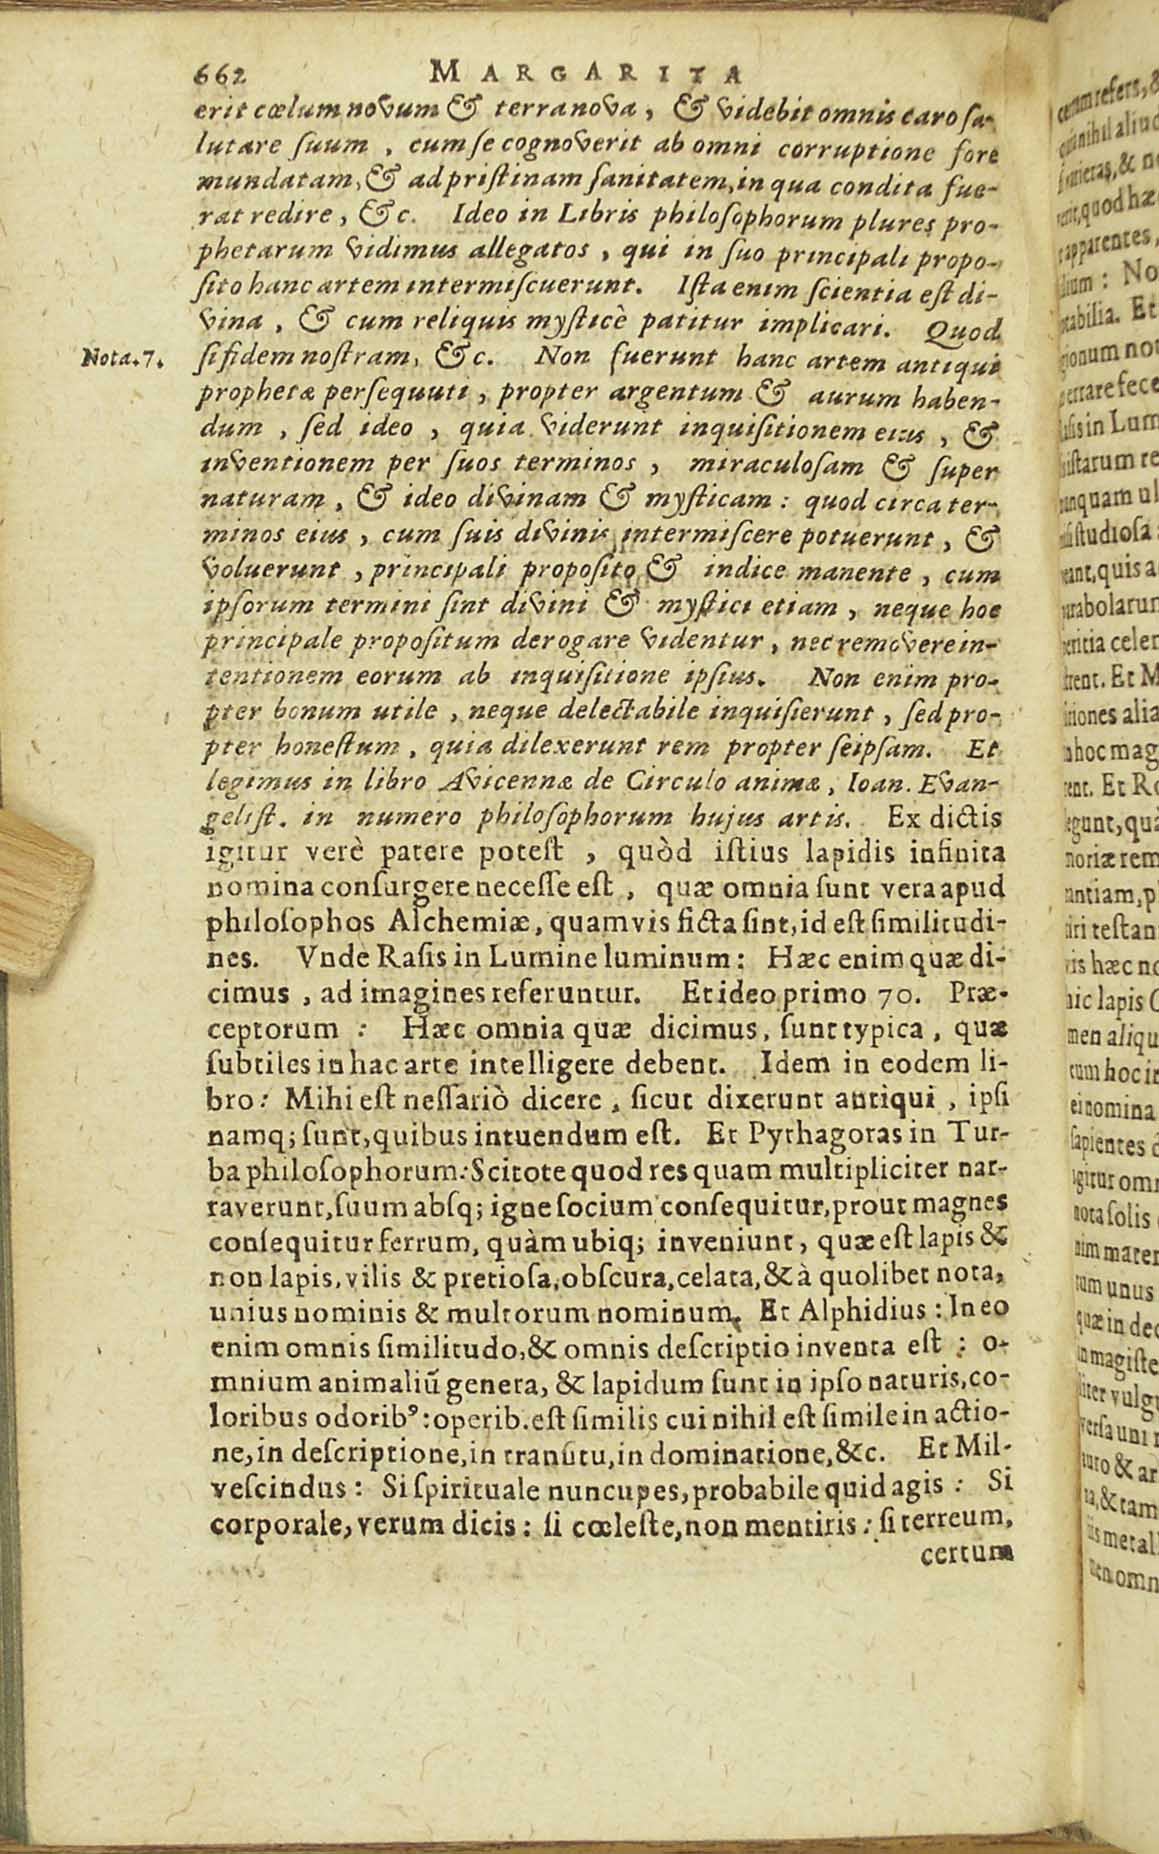 662 MARGARITA
erit cœlum novum & terra nova, & videbit omnis caro sa-
lutare suum, cum se cognoverit ab omni corruptione fore
mundatam, & ad pristinam sanitatem, in qua condita fue-
rat redire, &c. Ideo in Libris philosophorum plures pro-
phetarum vidimus allegatos, qui in suo principali propo-
sito hanc artem intermiscuerunt. Ista enim scientia est di-
vina, & cum reliquis mysticè patitur implicari. Quod
Nota. 7. si fidem nostram, &c. Non fuerunt hanc artem antiqui
prophetæ persequuti, propter argentum & aurum haben-
dum, sed ideo, quia viderunt inquisitionem eius, &
inventionem per suos terminos, miraculosam & super
naturam, & ideo divinam & mysticam: quod circa ter-
minos eius, cum suis divinis intermiscere potuerunt, &
voluerunt, principali proposito & indice manente, cum
ipsorum termini sint divini & mystici etiam, neque hoc
principale propositum derogare videntur, nec removere in-
tentionem eorum ab inquisitione ipsius. Non enim pro-
pter bonum utile, neque delectabile inquisierunt, sed pro-
pter honestum, quia dilexerunt rem propter seipsam. Et
legimus in libro Avicennæ de Circulo animæ, Ioan. Evan-
gelist. in numero philosophorum hujus artis. Ex dictis
igitur verè patere potest, quòd istius lapidis infinita
nomina consurgere necesse est, quæ omnia sunt vera apud
philosophos Alchemiæ, quamvis ficta sint, id est similitudi-
nes. Vnde Rasis in Lumine luminum: Hæc enim quæ di-
cimus, ad imagines referuntur. Et ideo primo 70. Præ-
ceptorum: Hæc omnia quæ dicimus, sunt typica, quæ
subtiles in hac arte intelligere debent. Idem in eodem li-
bro: Mihi est nessariò dicere, sicut dixerunt antiqui, ipsi
namq; sunt, quibus intuendum est. Et Pythagoras in Tur-
ba philosophorum: Scitote quod res quam multipliciter nar-
raverunt, suum absq; igne socium consequitur, prout magnes
consequitur ferrum, quàm ubiq; inveniunt, quæ est lapis &
non lapis, vilis & pretiosa, obscura, celata, & à quolibet nota,
unius nominis & multorum nominum. Et Alphidius: In eo
enim omnis similitudo, & omnis descriptio inventa est: o-
mnium animaliũ genera, & lapidum sunt in ipso naturis, co-
loribus odorib⁹: operib. est similis cui nihil est simile in actio-
ne, in descriptione, in transitu, in dominatione, &c. Et Mil-
vescindus: Si spirituale nuncupes, probabile quid agis: Si
corporale, verum dicis: si cœleste, non mentiris: si terreum,
certum